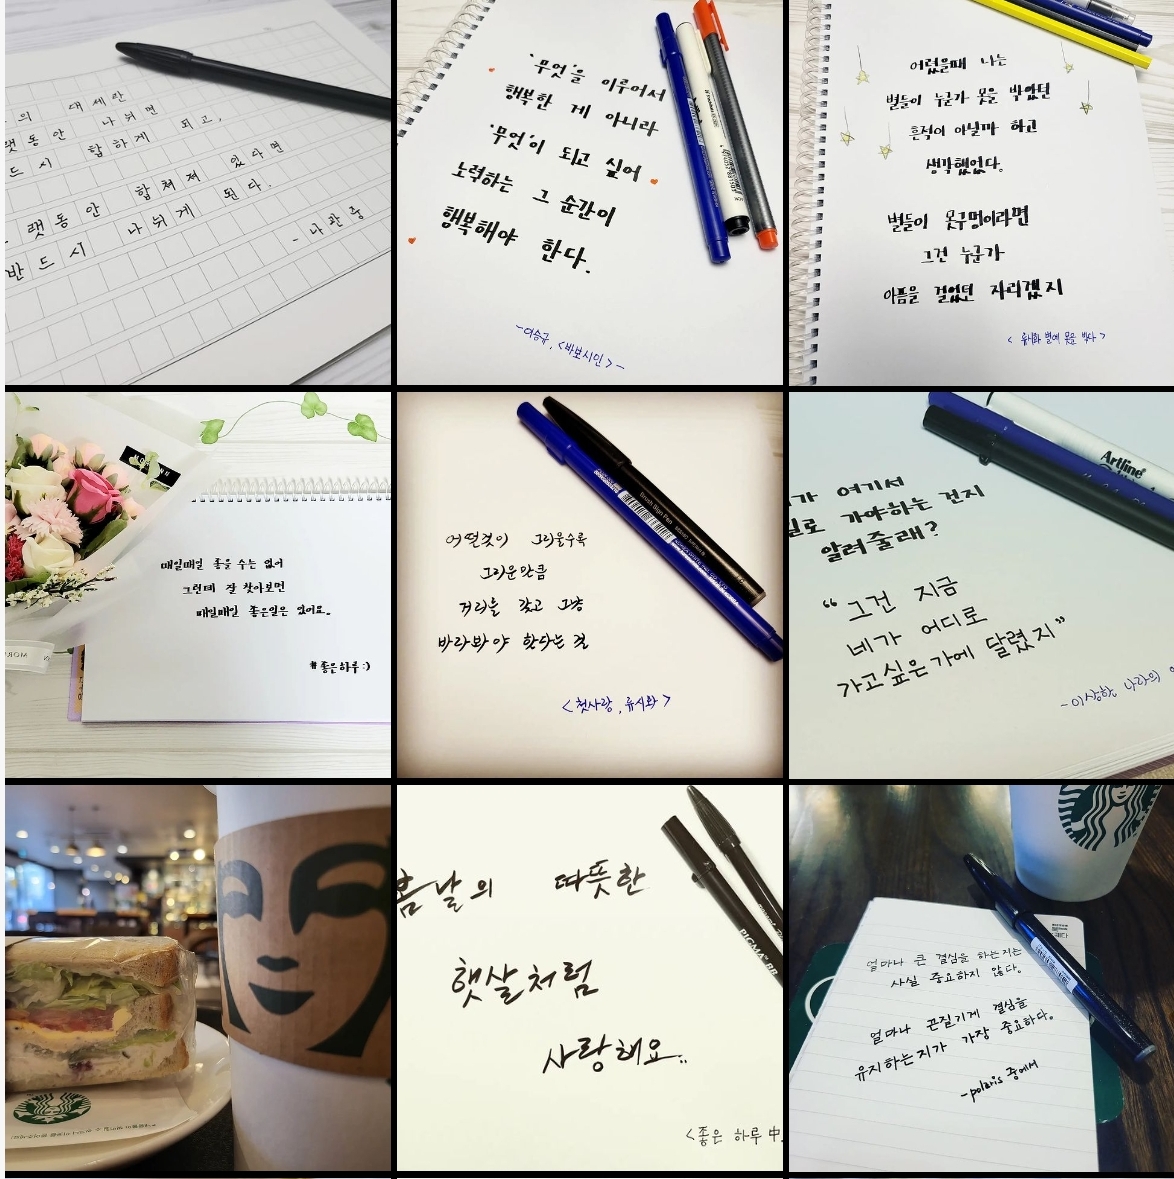 의 대세란
랫동안 나뉘면
드시 합하게 되고,
랫동안 합쳐져 있다면
반드시 나뉘게 된다.
- 나관중
'무엇'을 이루어서
행복한 게 아니라
'무엇'이 되고 싶어
노력하는 그 순간이
행복해야 한다.
- 이승규, <바보시인> -
어렸을때 나는
별들이 누군가 못을 박았던
흔적이 아닐까 하고
생각했었다.
별들이 못구멍이라면
그건 누군가
아픔을 걸었던 자리겠지
< 류시화 별에 못을 박다 >
매일매일 좋을 수는 없어
그런데 잘 찾아보면
매일매일 좋은일은 있어요.
#좋은하루 :)
어떤것이 그리울수록
그리운만큼
거리를 갖고 그냥
바라봐야 한다는 것
<첫사랑, 류시화>
Brush Sign Pen
Artline
가 여기서
로 가야하는 건지
알려줄래?
"그건 지금
네가 어디로
가고싶은가에 달렸지"
- 이상한 나라의
봄날의 따뜻한
햇살처럼
사랑해요..
<좋은 하루 中
PIGMA BB
얼마나 큰 결심을 하는지는
사실 중요하지 않다.
얼마나 끈질기게 결심을
유지하는지가 가장 중요하다.
- polaris 중에서